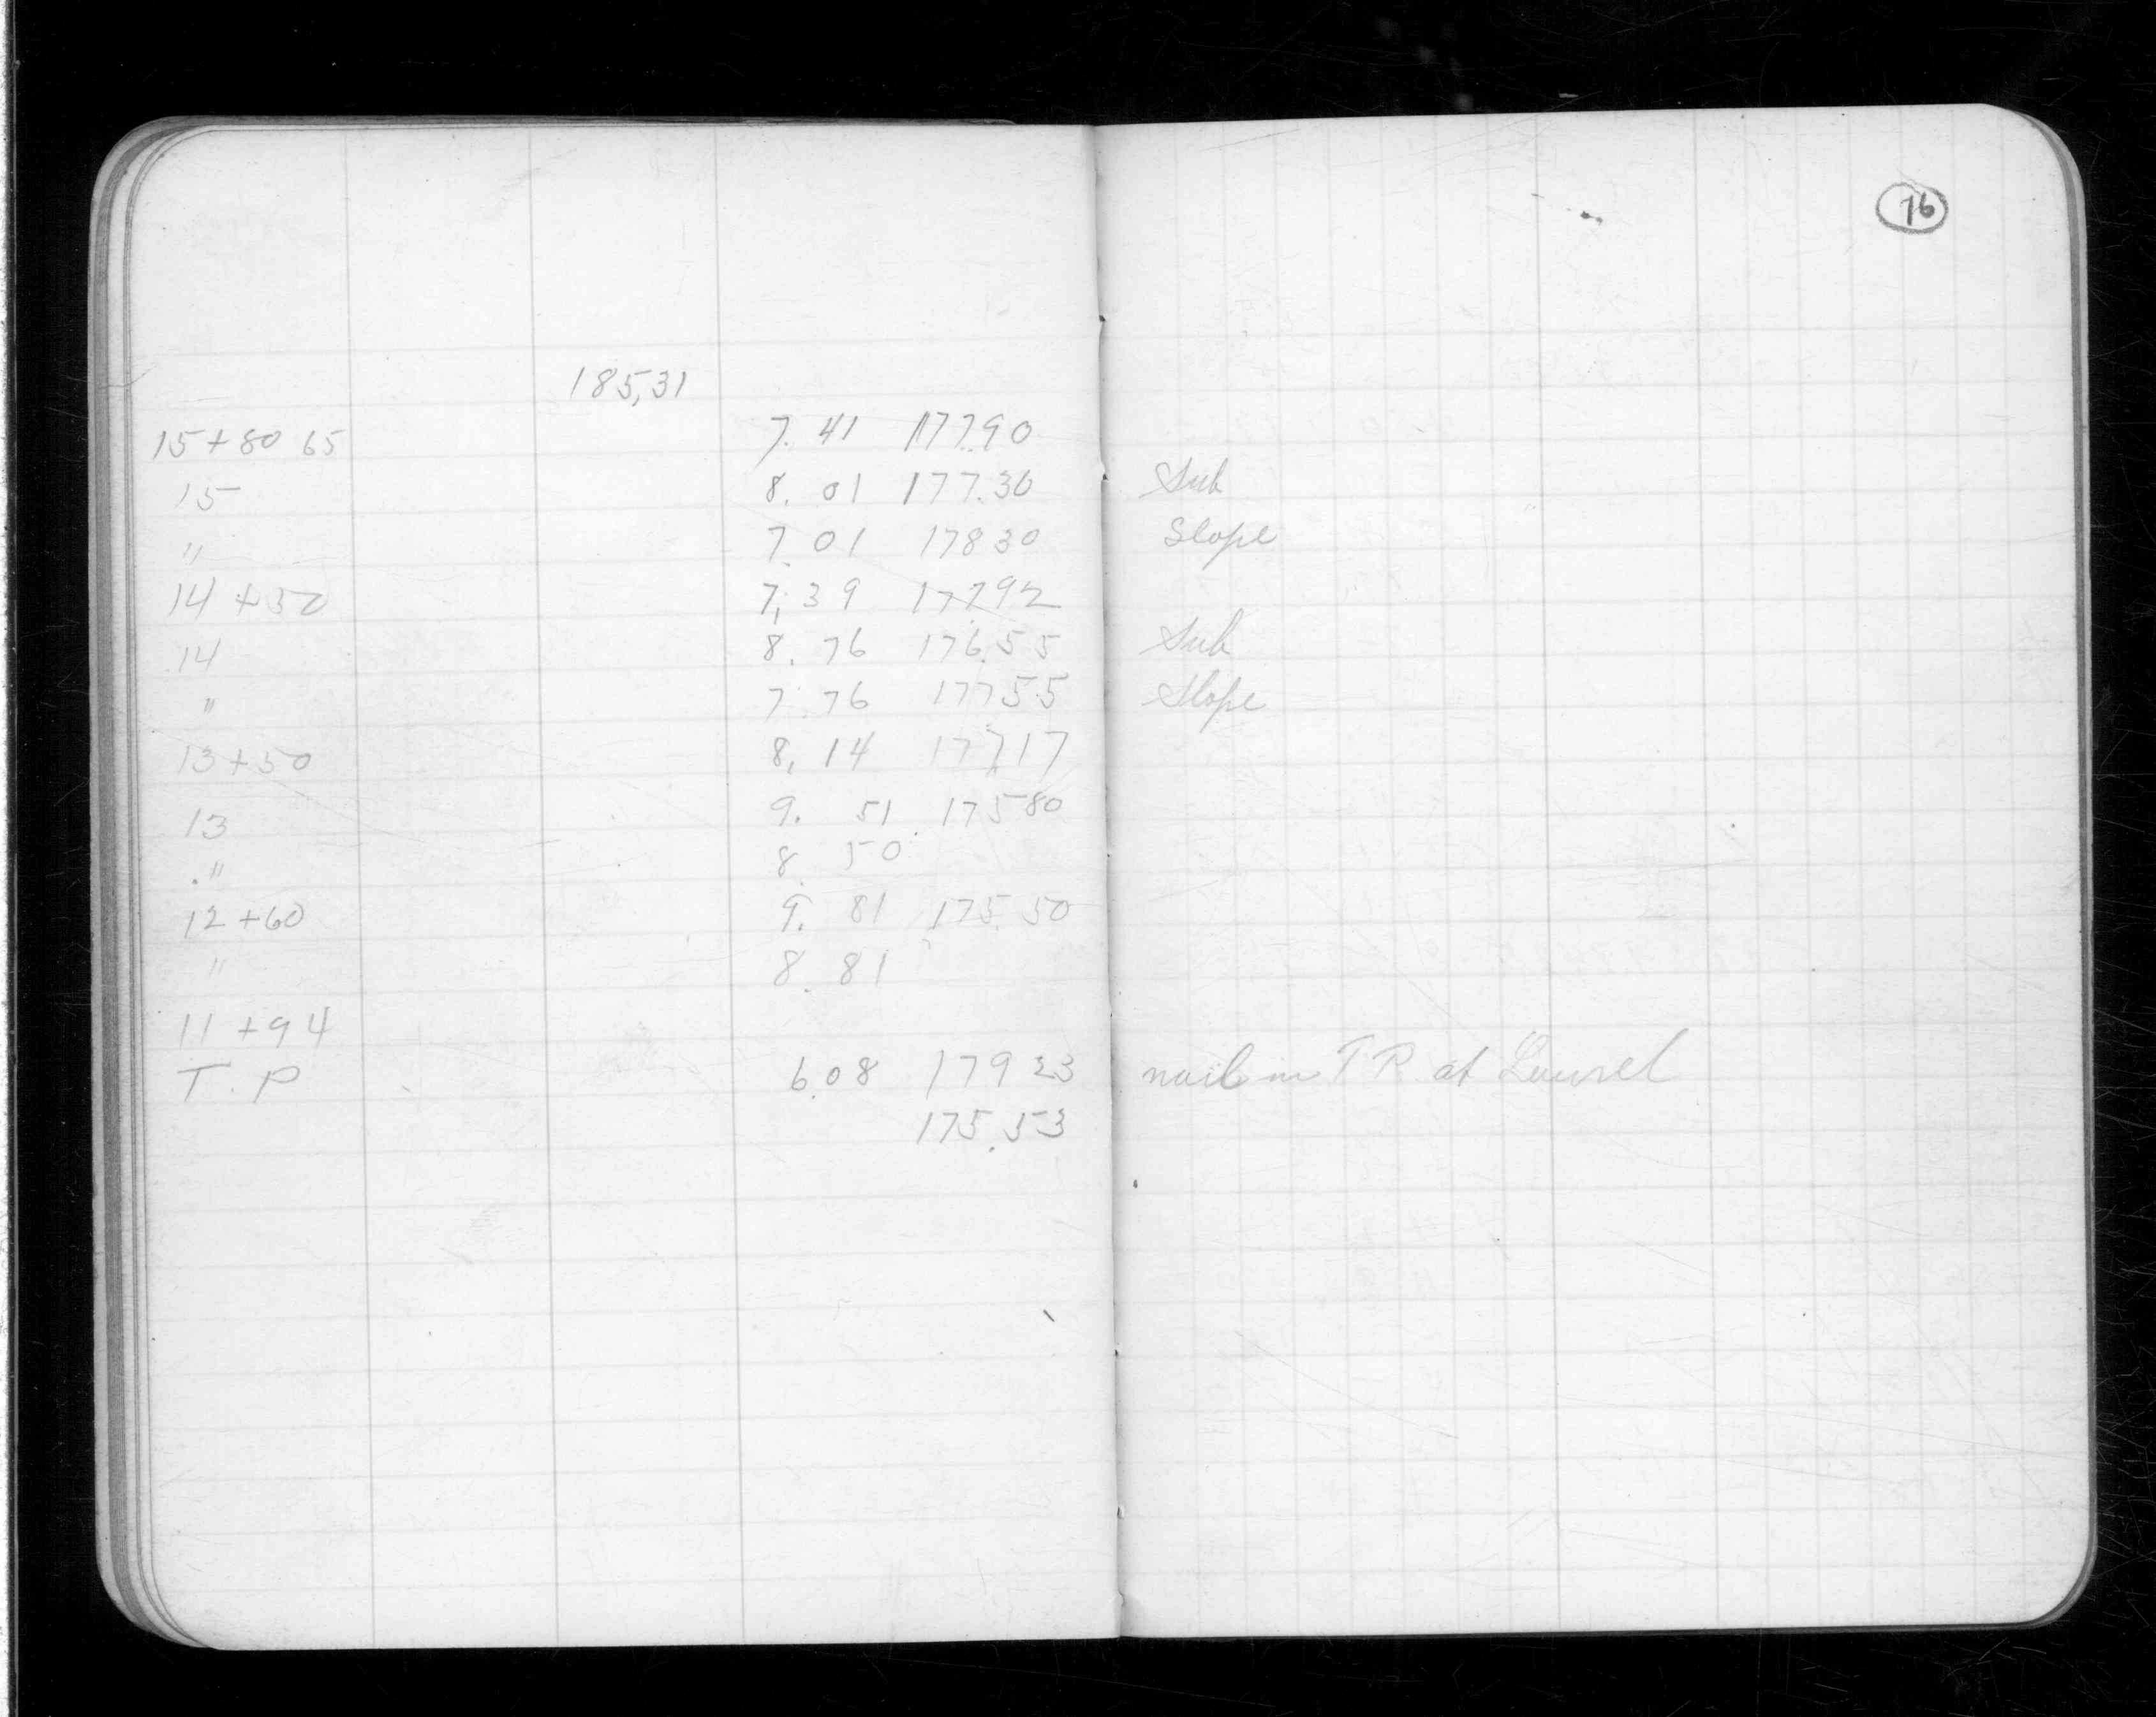 76
185,31
15+80 65 7.41 177.90
15 8.01 177.30 Sub
" 7.01 178 30 Slope
14 +50 7,39 177.92
14 8.76 176.55 Sub
" 7.76 177 55 Slope
13+50 8,14 177,17
13 9. 51 175 80
" 8. 50
12 +60 9. 81 175.50
" 8.81
11 +94
T.P 6.08 179 23 nail in T P. at Laurel
175.53